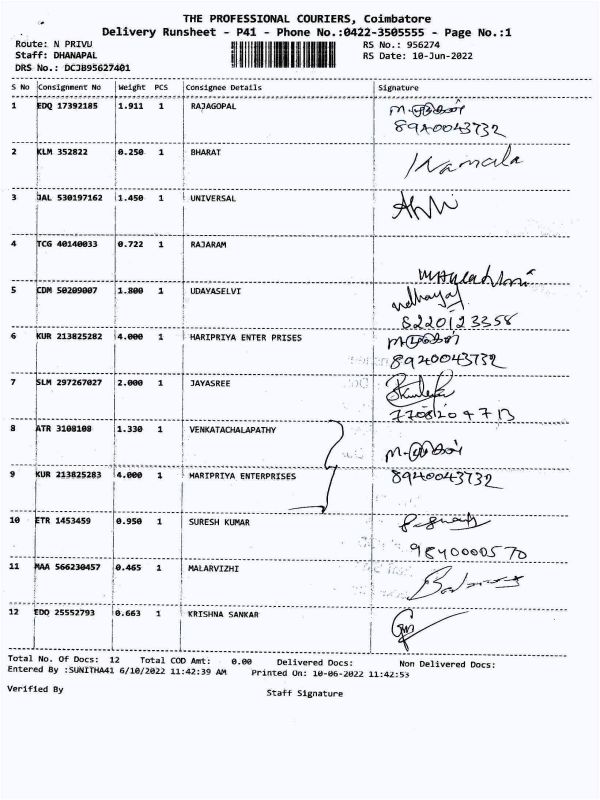 THE PROFESSIONAL COURIERS, Coimbatore
Delivery Runsheet - P41 - Phone No.:0422-3505555 - Page No.:1
Route: N PRIVU RS No.: 956274
Staff: DHANAPAL RS Date: 10-Jun-2022
DRS No.: DCJB95627401
S No Consignment No Weight PCS Consignee Details Signature
1 EDQ 17392185 1.911 1 RAJAGOPAL
8940043732
2 KLM 352822 0.250 1 BHARAT Kamala
3 JAL 530197162 1.450 1 UNIVERSAL
4 TCG 40140033 0.722 1 RAJARAM
5 CDM 50209007 1.800 1 UDAYASELVI
8220123358
6 KUR 213825282 4.000 1 HARIPRIYA ENTER PRISES
8940043732
7 SLM 297267027 2.000 1 JAYASREE
7708204713
8 ATR 3108108 1.330 1 VENKATACHALAPATHY
9 KUR 213825283 4.000 1 HARIPRIYA ENTERPRISES 8940043732
10 ETR 1453459 0.950 1 SURESH KUMAR
9840000570
11 MAA 566230457 0.465 1 MALARVIZHI
12 EDQ 25552793 0.663 1 KRISHNA SANKAR
Total No. Of Docs: 12 Total COD Amt: 0.00 Delivered Docs: Non Delivered Docs:
Entered By :SUNITHA41 6/10/2022 11:42:39 AM Printed On: 10-06-2022 11:42:53
Verified By Staff Signature